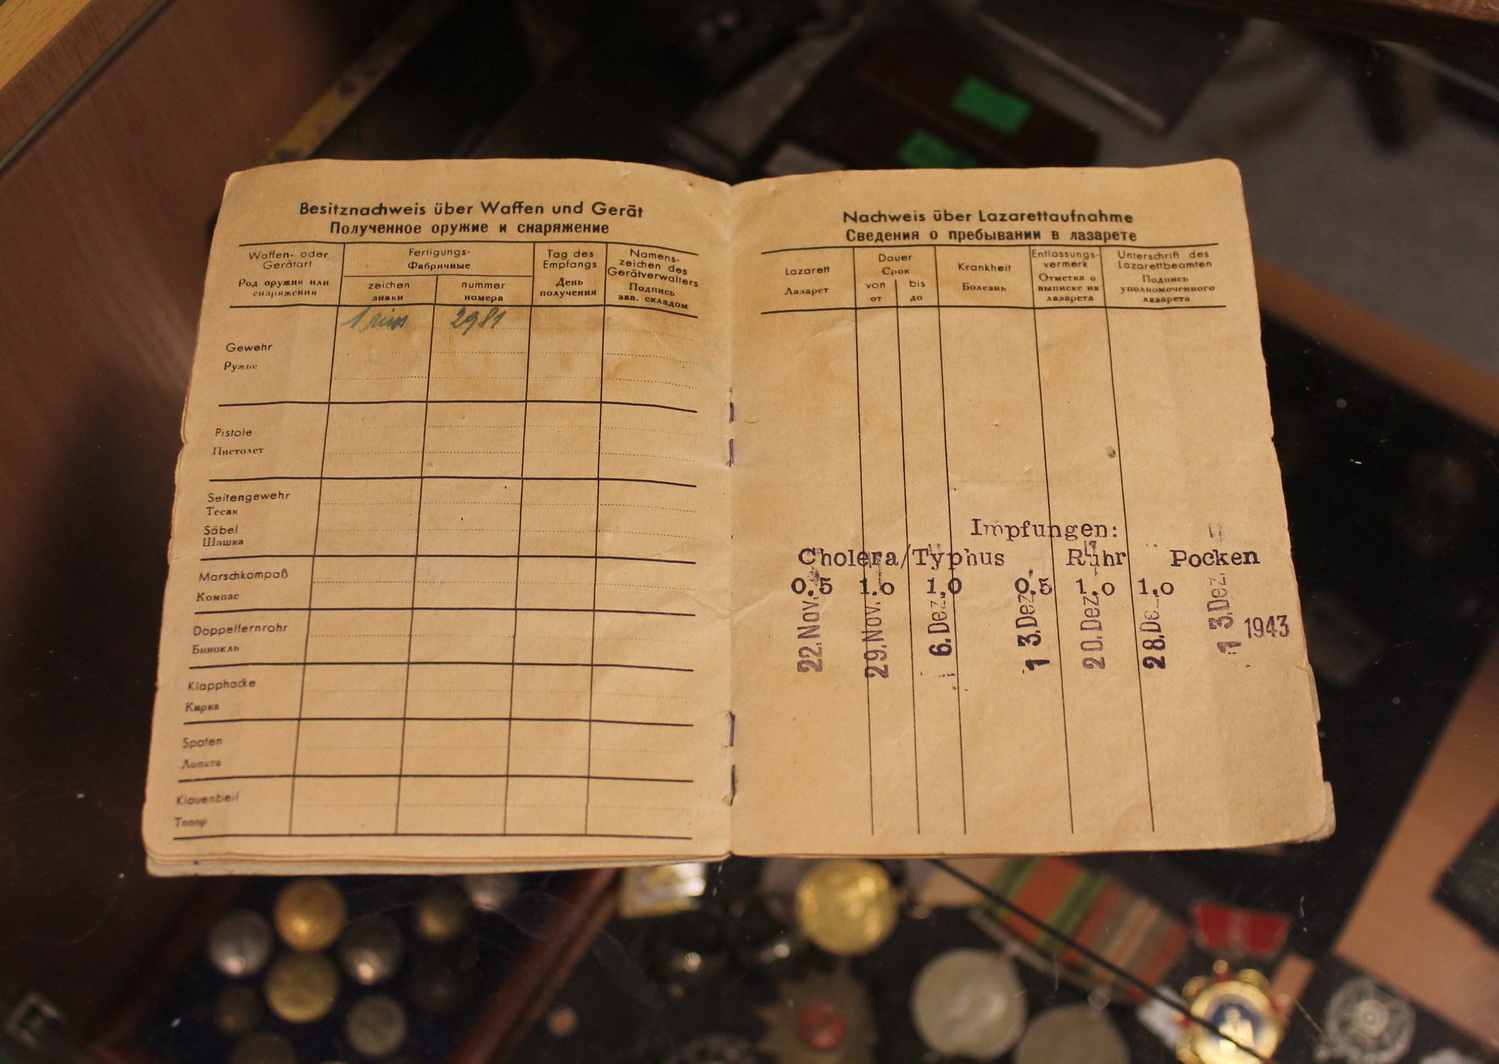 Besitznachweis über Waffen und Gerät
Полученное оружие и снаряжение
Waffen- oder
Gerätart
Род оружия или
снаряжения
Fertigungs-
Фабричные
zeichen
знаки
nummer
номера
Tag des
Empfangs
День
получения
Namens-
zeichen des
Gerätverwalters
Подпись
зав. складом
2981
Gewehr
Ружье
Pistole
Пистолет
Seitengewehr
Тесак
Säbel
Шашка
Marschkompaß
Компас
Doppelfernrohr
Бинокль
Klapphacke
Кирка
Spaten
Лопата
Klauenbeil
Топор
Nachweis über Lazarettaufnahme
Сведения о пребывании в лазарете
Lazarett
Лазарет
Dauer
Срок
von
от
bis
до
Krankheit
Болезнь
Entlassungs-
vermerk
Отметка о
выписке из
лазарета
Unterschrift des
Lazarettbeamten
Подпись
уполномоченного
лазарета
Impfungen:
Cholera/Typhus Ruhr Pocken
0.5 1.0 1,0 0,5 1,0 1,0
22. Nov. 29. Nov. 6. Dez. 13. Dez. 20. Dez. 28. De 13. Dez. 1943